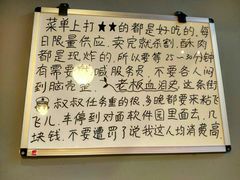 菜单上打★★的都是好吃的,每
日限量供应,卖完就杀割,酥肉
都是现炸的,所以要等25-30分钟
有需要 喊服务员,不要各人闷
到脑壳整,老板血泪史,这条街
叔叔任务重的很,多晚都要来粘飞
飞儿,车停到对面软件园里面去,几
块钱,不要遭罚了说我这人均消费高